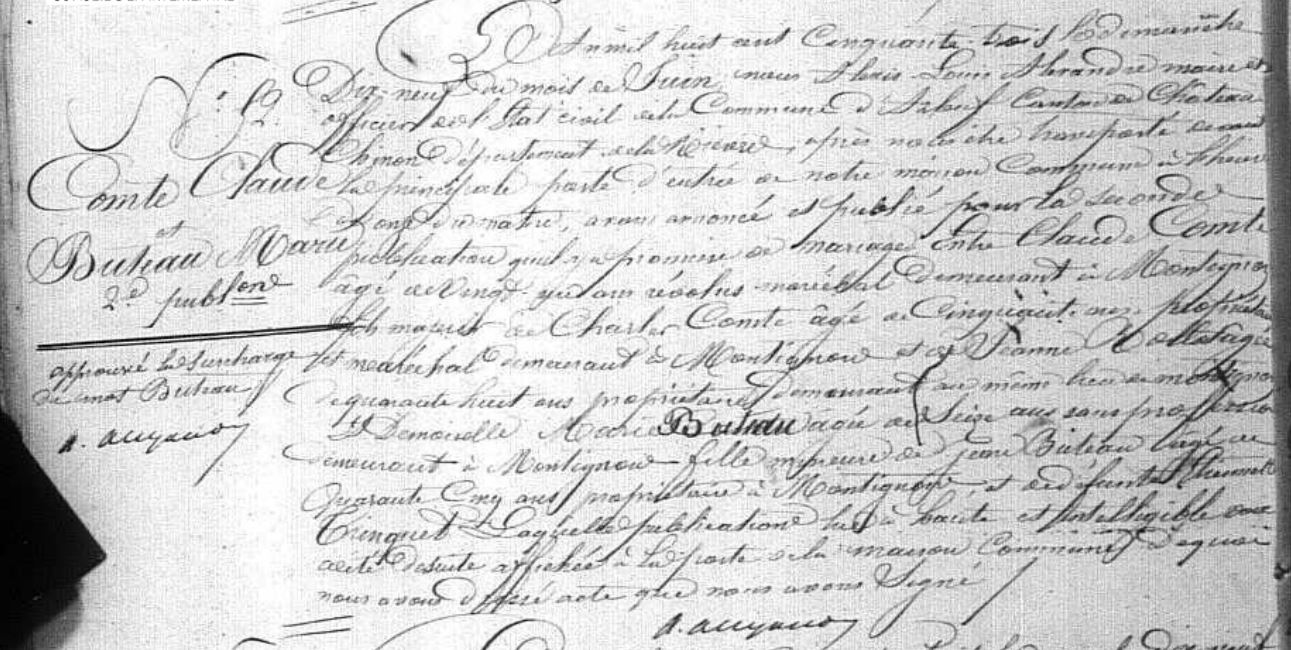 N.° 12.
Comte Claude
et
Buteau Marie
2.e publ.on
approuvé la surcharge
du mot Buteau
L'an mil huit cent Cinquante trois le dimanche
Dix-neuf du mois de Juin, nous Alexis Louis Alexandre maire et
officier de l'Etat civil de la Commune d' Canton de Chateau
Chinon département de la Nièvre, après nous être transporté devant
la principale porte d'entrée de notre maison Commune à l'heure
de onze du matin, avons annoncé et publié pour la seconde
publication qu'il y a promesse de mariage entre Claude Comte
âgé de Vingt ans révolus maréchal demeurant à Montignon
fils majeur de Charles Comte âgé de Cinquante ans propriétaire
et maréchal demeurant à Montignon et de Jeanne âgée
de quarante huit ans propriétaire demeurant au même lieu de montignon
Et Demoiselle Marie Buteau âgée de Seize ans sans profession
demeurant à Montignon fille mineure de jean Buteau âgé de
Quarante Cinq ans propriétaire à Montignon et de défunte
Trinquet Laquelle publication lue à haute et intelligible voix
a été desuite affichée à la porte de la maison Commune De quoi
nous avons dressé acte que nous avons Signé